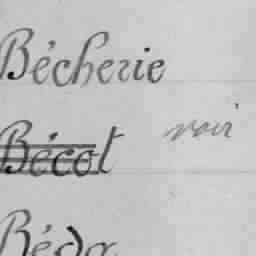 Bécherie
Bécot voir
Béda